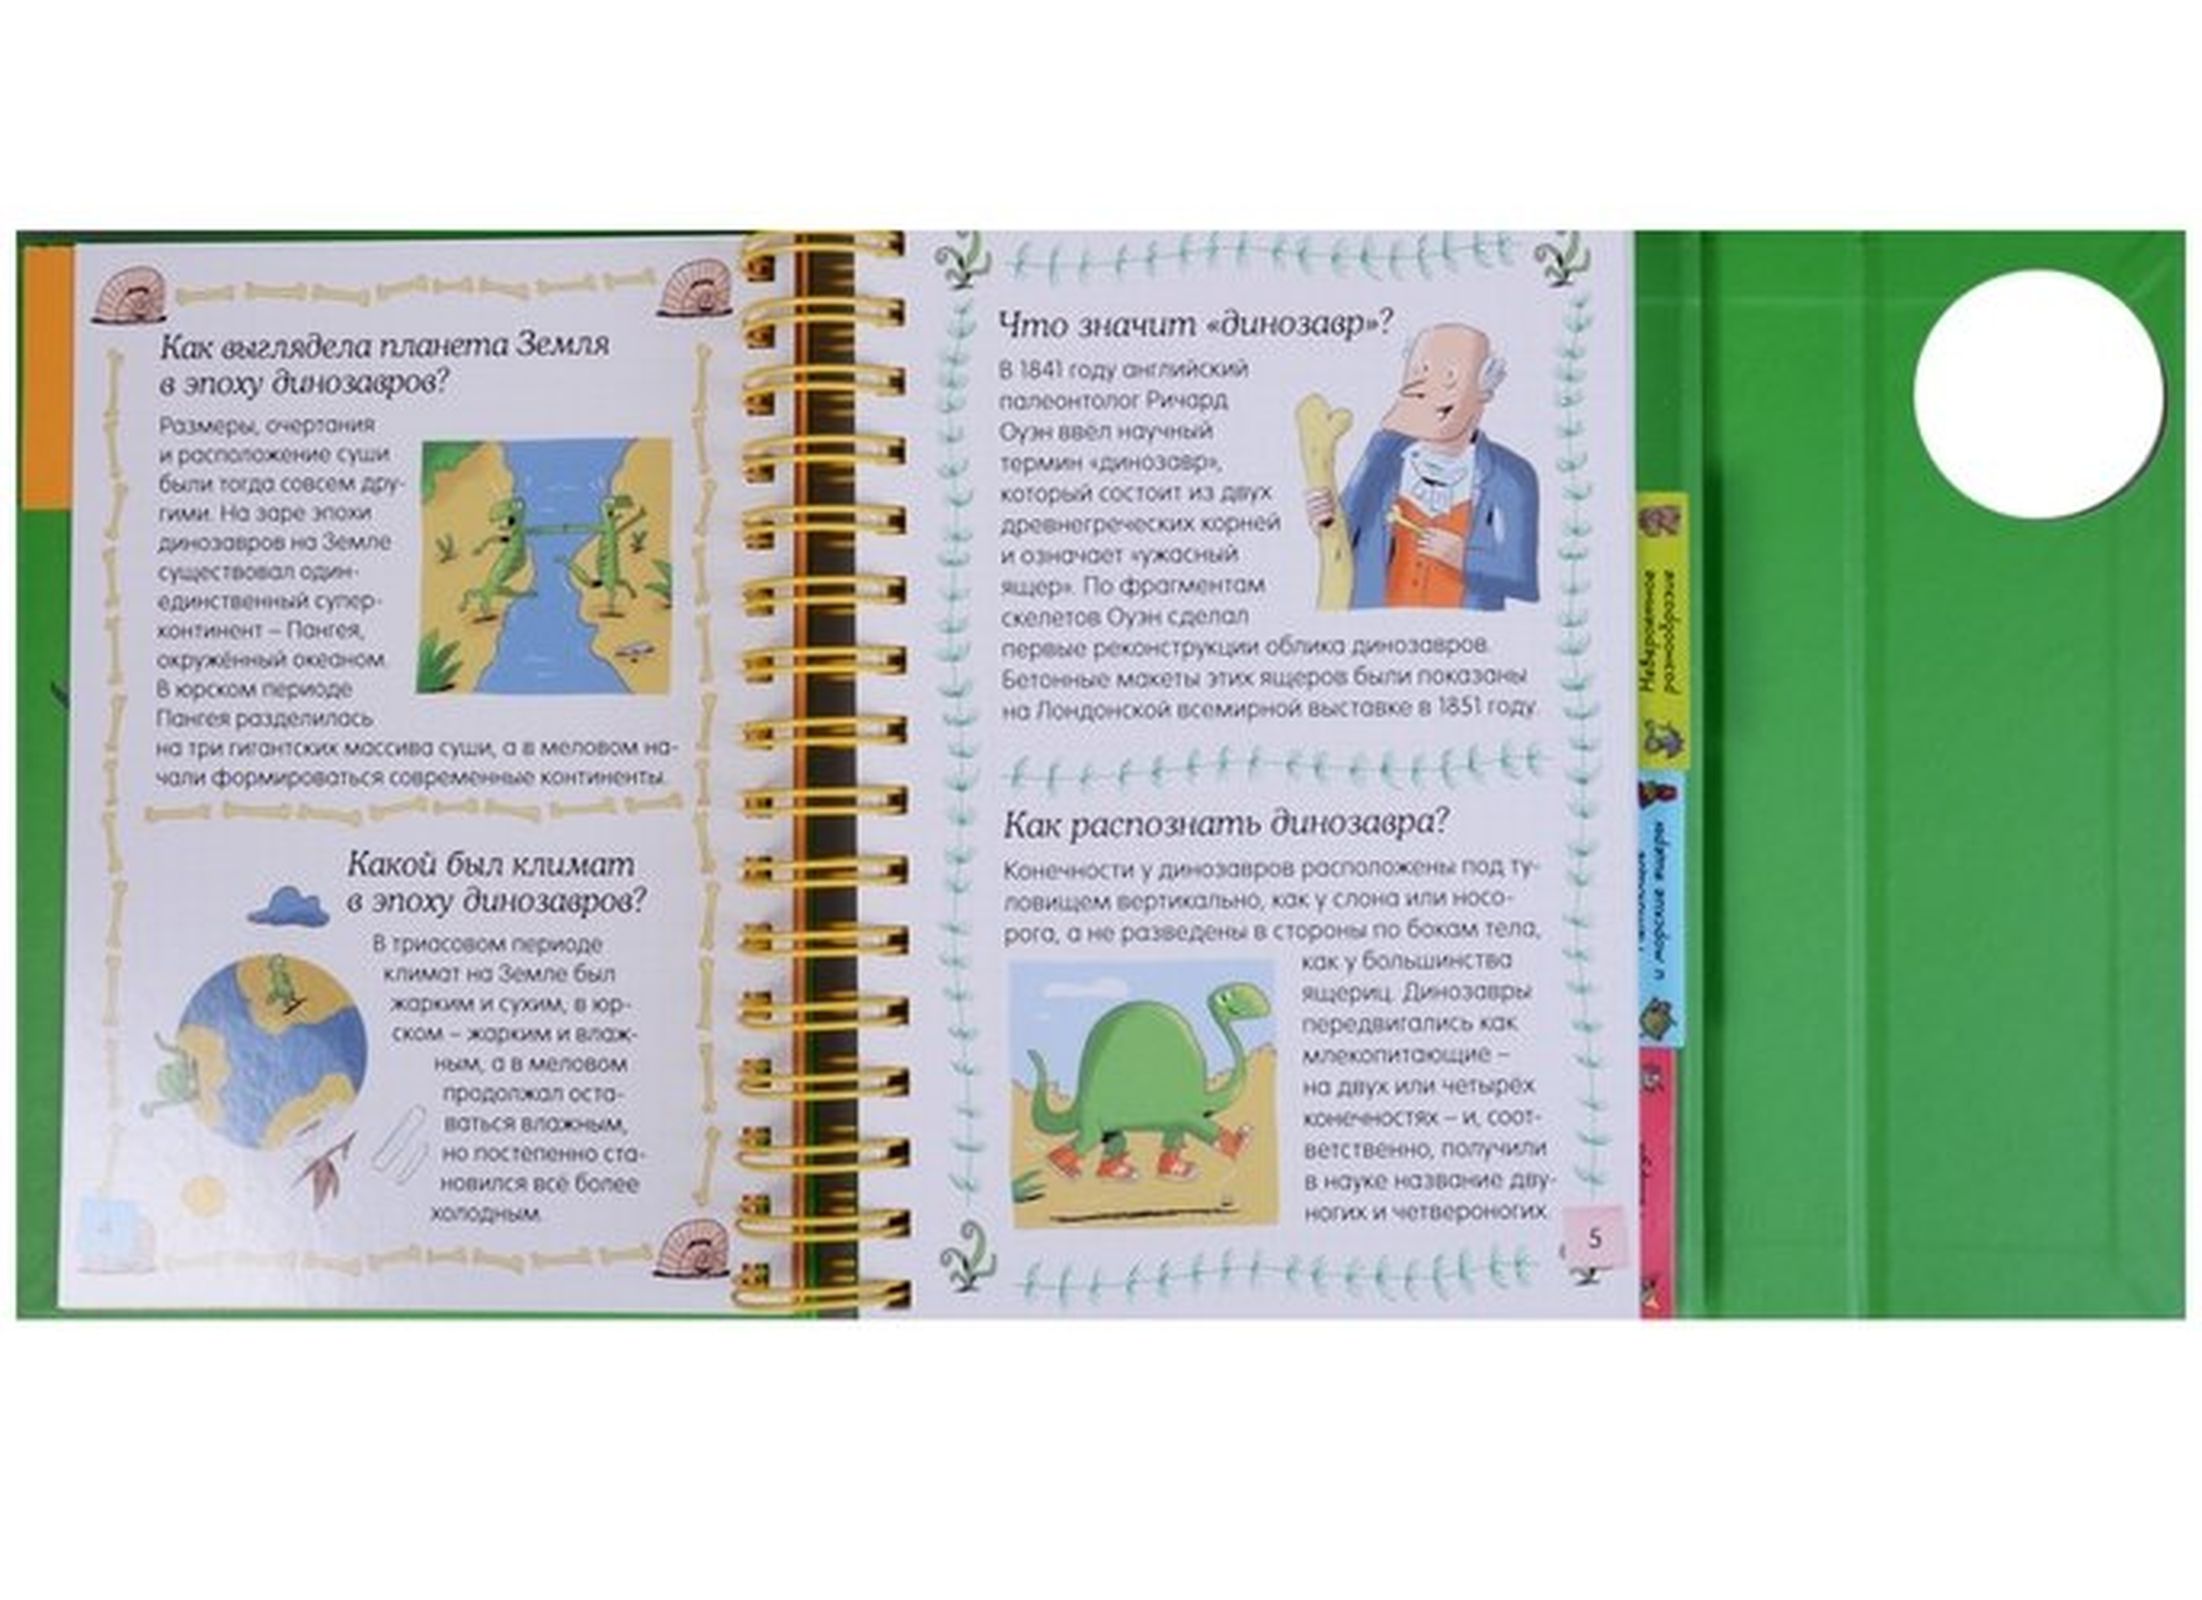 Как выглядела планета Земля
в эпоху динозавров?
Размеры, очертания
и расположение суши
были тогда совсем дру-
гими. На заре эпохи
динозавров на Земле
существовал один-
единственный супер-
континент – Пангея,
окружённый океаном.
В юрском периоде
Пангея разделилась
на три гигантских массива суши, а в меловом на-
чали формироваться современные континенты.
Какой был климат
в эпоху динозавров?
В триасовом периоде
климат на Земле был
жарким и сухим, в юр-
ском – жарким и влаж-
ным, а в меловом
продолжал оста-
ваться влажным,
но постепенно ста-
новился всё более
холодным.
Что значит «динозавр»?
В 1841 году английский
палеонтолог Ричард
Оуэн ввёл научный
термин «динозавр»,
который состоит из двух
древнегреческих корней
и означает «ужасный
ящер». По фрагментам
скелетов Оуэн сделал
первые реконструкции облика динозавров.
Бетонные макеты этих ящеров были показаны
на Лондонской всемирной выставке в 1851 году.
Как распознать динозавра?
Конечности у динозавров расположены под ту-
ловищем вертикально, как у слона или носо-
рога, а не разведены в стороны по бокам тела,
как у большинства
ящериц. Динозавры
передвигались как
млекопитающие –
на двух или четырёх
конечностях – и, соот-
ветственно, получили
в науке название дву-
ногих и четвероногих.
5
Невероятное
разнообразие
морские